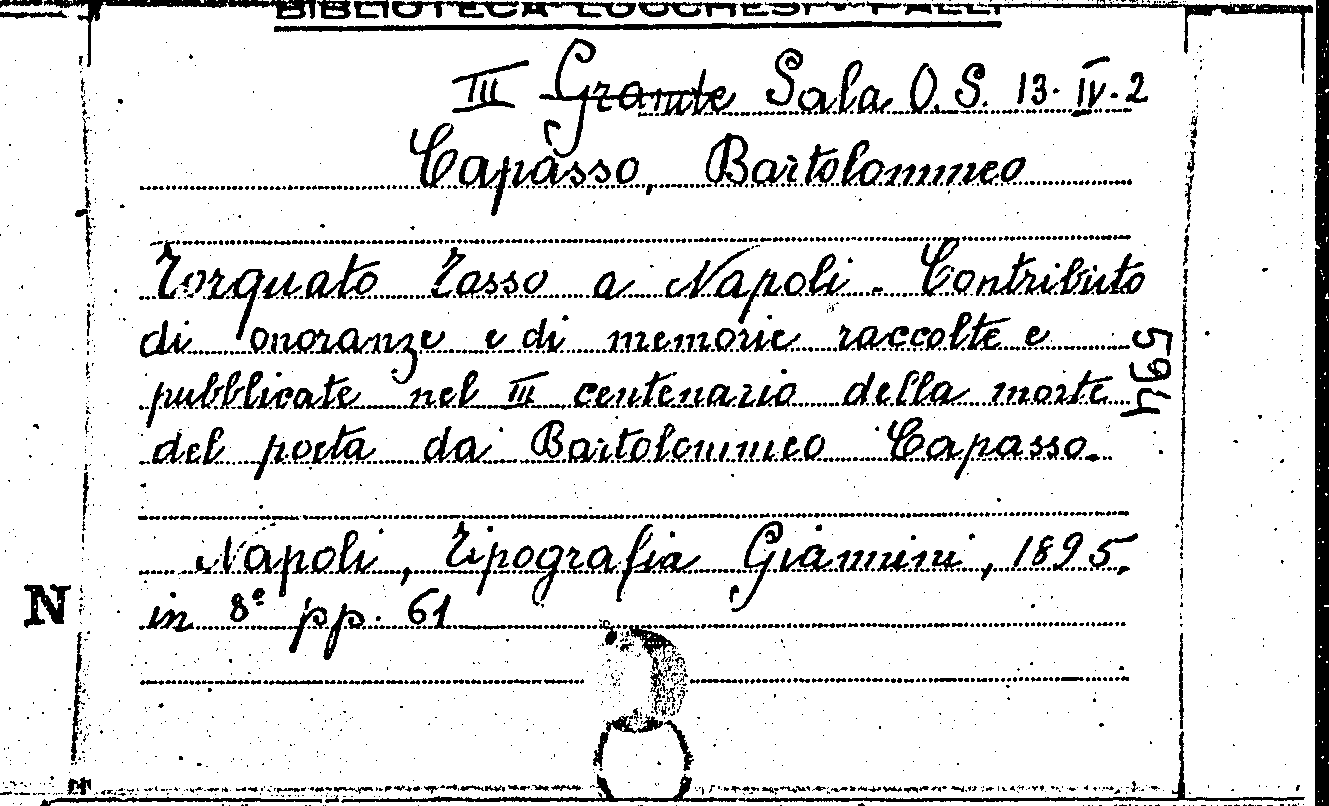 BIBLIOTECA LUCCHESI - PALLI
III Grande Sala O. S. 13. IV. 2
Capasso, Bartolommeo
Torquato Tasso a Napoli - Contributo
di onoranze e di memorie raccolte e
pubblicate nel III centenario della morte
del poeta da Bartolommeo Capasso.
594
Napoli, Tipografia Giannini, 1895.
in 8° pp. 61
N